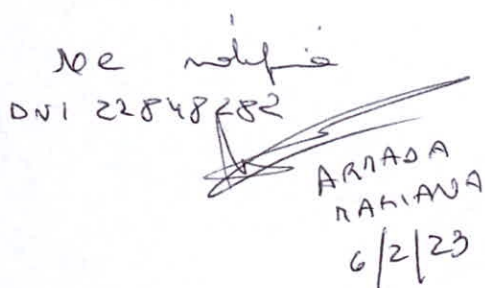 Me notifiqué
DNI 22848282
ARMADA
MARIANA
6/2/23